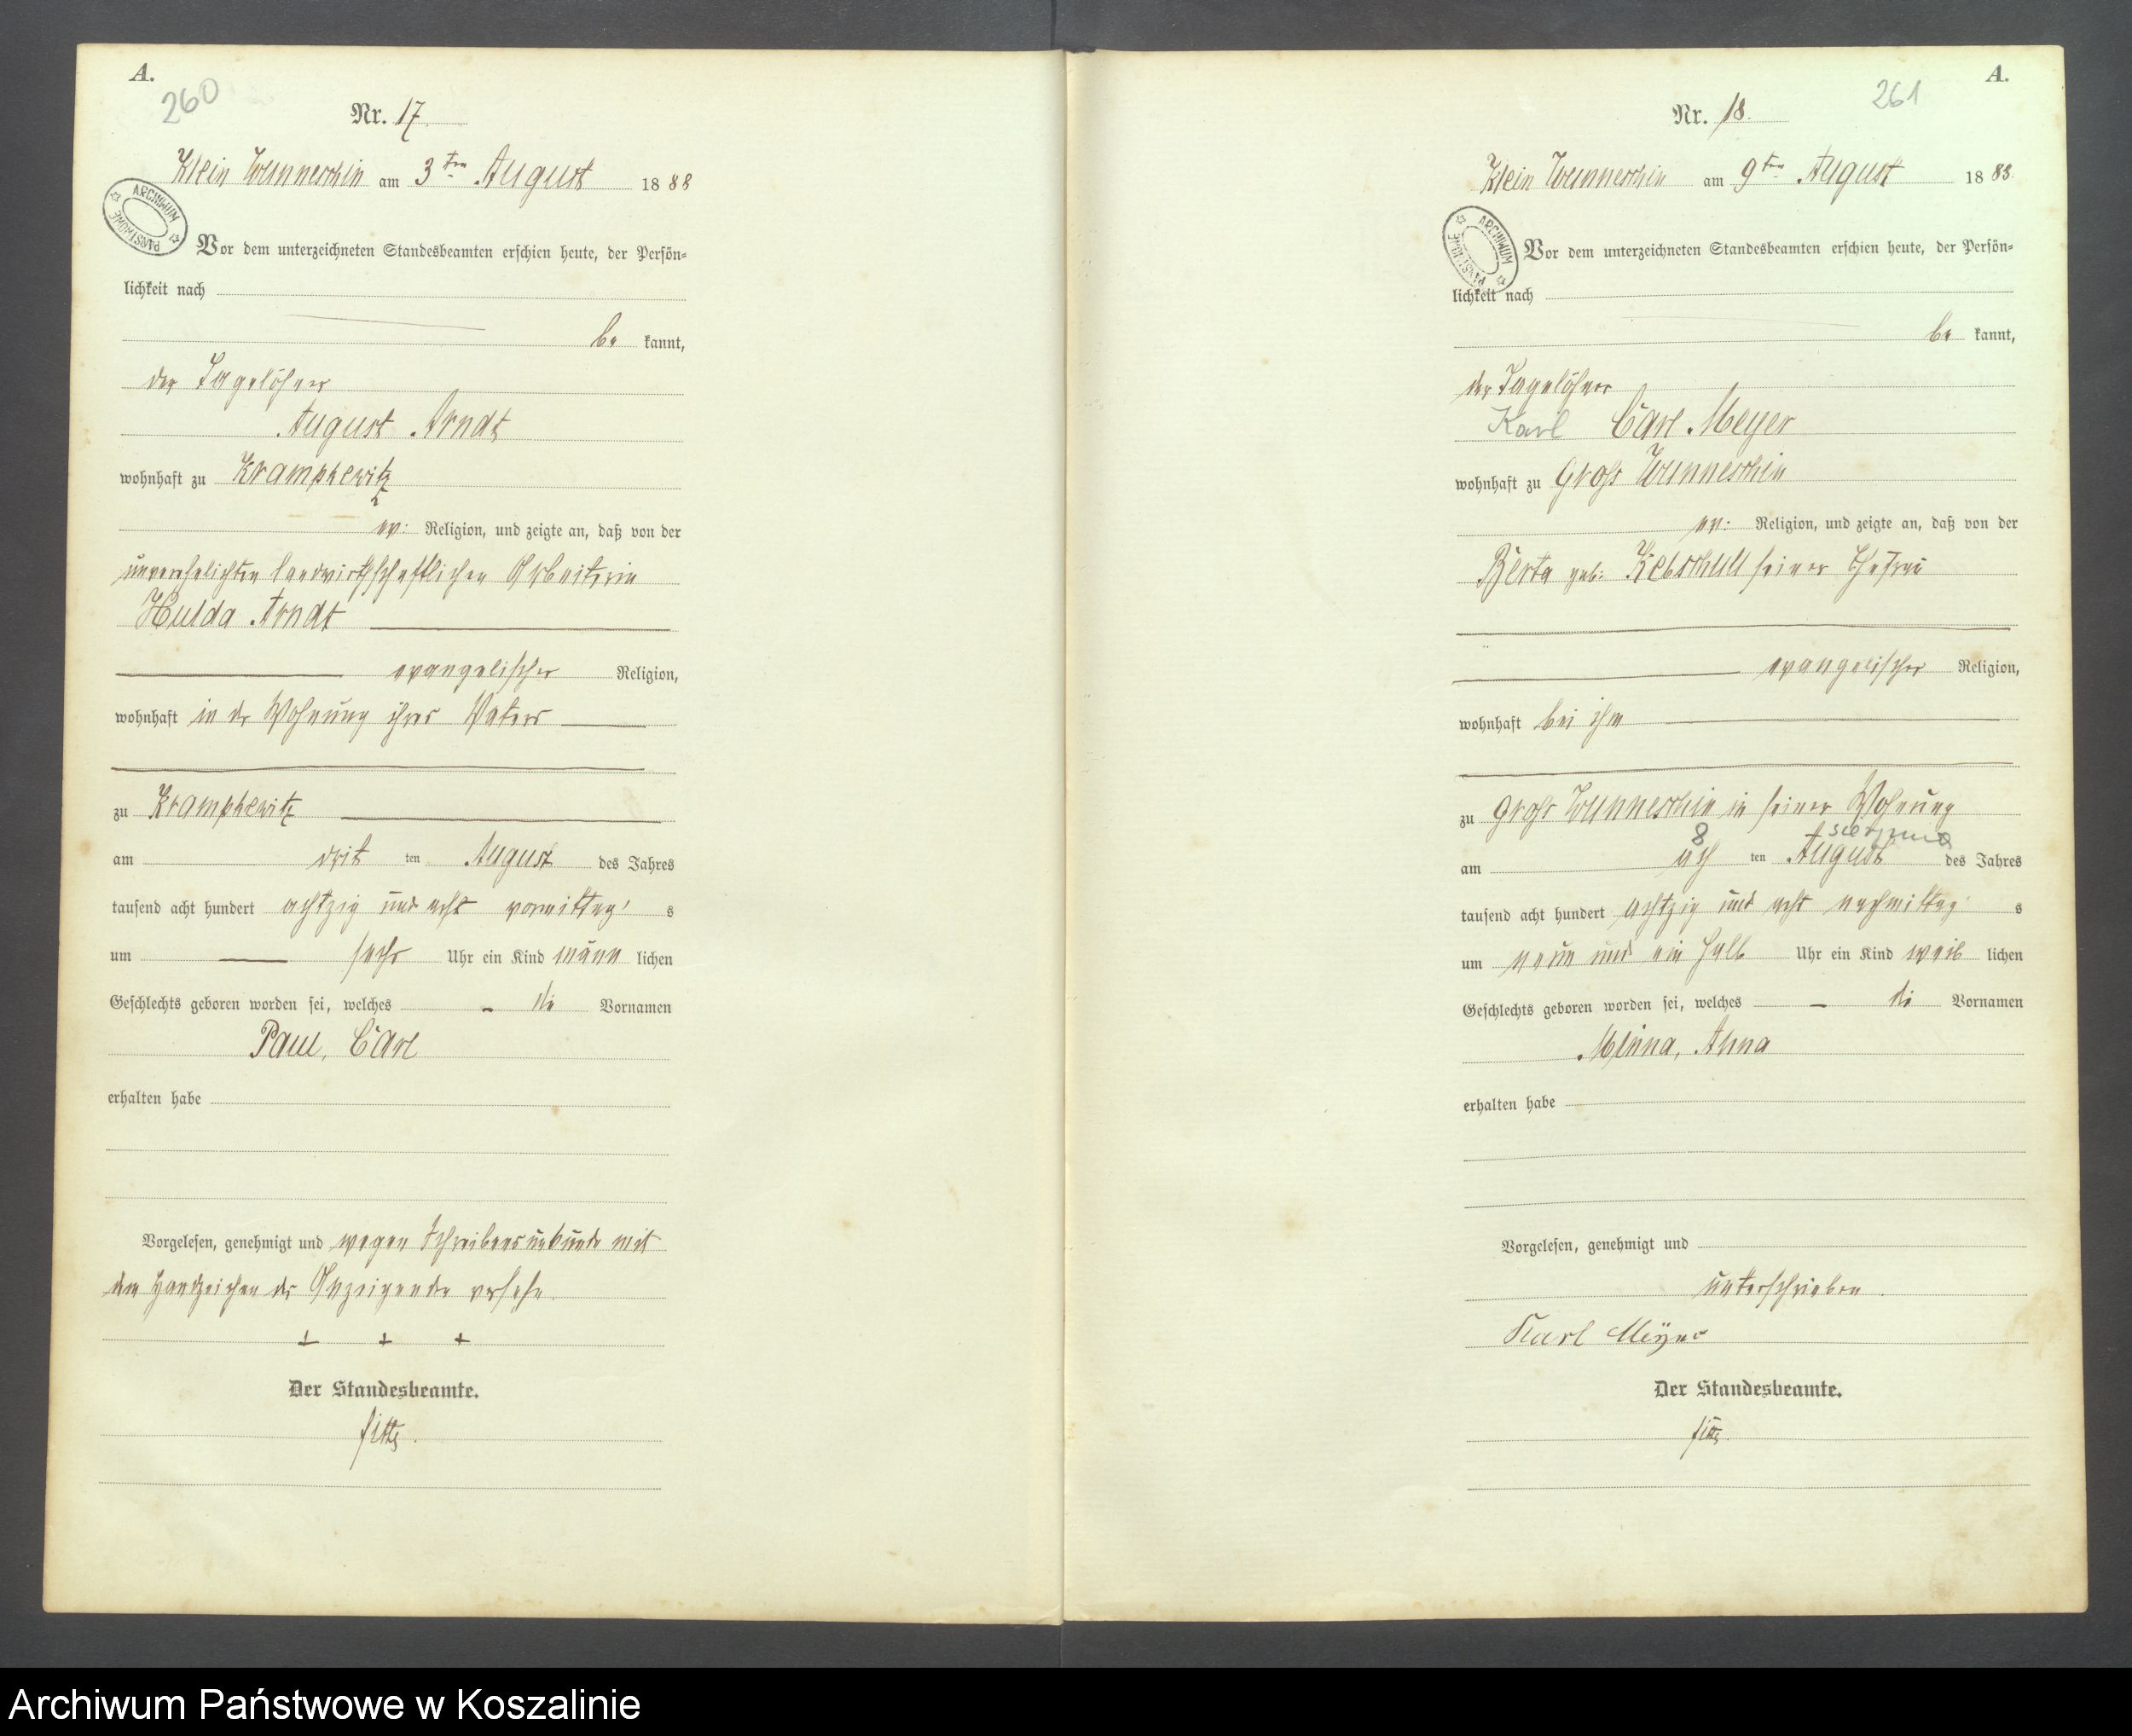 A.
260
Nr. 17.
Klein Wunneschin am 3ten August 1888
ARCHIWUM PAŃSTWOWE
Vor dem unterzeichneten Standesbeamten erschien heute, der Persön-
lichkeit nach
be kannt,
der Tagelöhner
August Arndt
wohnhaft zu Krampkewitz
ev: Religion, und zeigte an, daß von der
unverehelichten landwirthschaftlichen Arbeiterin
Hulda Arndt
evangelischer Religion,
wohnhaft in der Wohnung ihres Vaters
zu Krampkewitz
am drit ten August des Jahres
tausend acht hundert achtzig und acht vormittag s
um sechs Uhr ein Kind männ lichen
Geschlechts geboren worden sei, welches die Vornamen
Paul, Carl
erhalten habe
Vorgelesen, genehmigt und wegen Schreibensunkunde mit
dem Handzeichen des Anzeigenden versehen.
+ + +
Der Standesbeamte.
A.
261
Nr. 18.
Klein Wunneschin am 9ten August 1888.
ARCHIWUM PAŃSTWOWE
Vor dem unterzeichneten Standesbeamten erschien heute, der Persön-
lichkeit nach
be kannt,
der Tagelöhner
Karl Carl Meyer
wohnhaft zu Groß Wunneschin
ev: Religion, und zeigte an, daß von der
Berta geb: Kebschull seiner Ehefrau
evangelischer Religion,
wohnhaft bei ihm
zu Groß Wunneschin in seiner Wohnung
8 sierpnia
am ach ten August des Jahres
tausend acht hundert achtzig und acht nachmittag s
um neun und ein halb Uhr ein Kind weib lichen
Geschlechts geboren worden sei, welches die Vornamen
Minna, Anna
erhalten habe
Vorgelesen, genehmigt und
unterschrieben.
Karl Meyer
Der Standesbeamte.
Archiwum Państwowe w Koszalinie